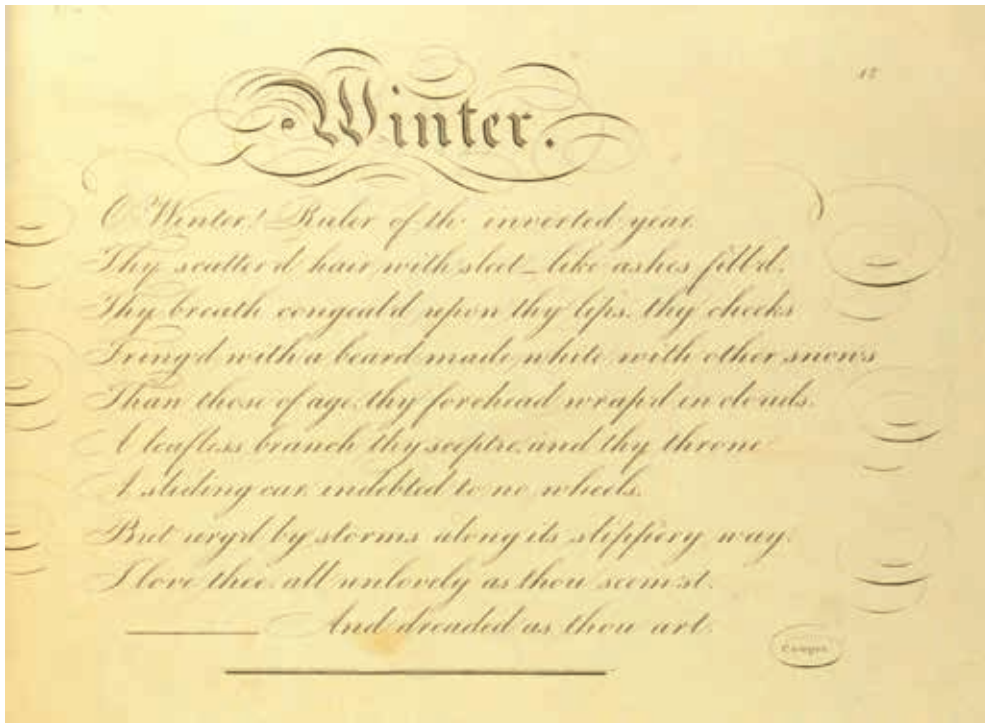 17
Winter.
O Winter! Ruler of th' inverted year
Thy scatter'd hair with sleet-like ashes fill'd.
Thy breath congeal'd upon thy lips, thy cheeks
Fring'd with a beard made white with other snows
Than those of age, thy forehead wrap'd in clouds.
A leafless branch thy sceptre, and thy throne
A sliding car, indebted to no wheels.
But urg'd by storms along its slippery way.
I love thee, all unlovely as thou seem'st.
And dreaded as thou art.
Cowper